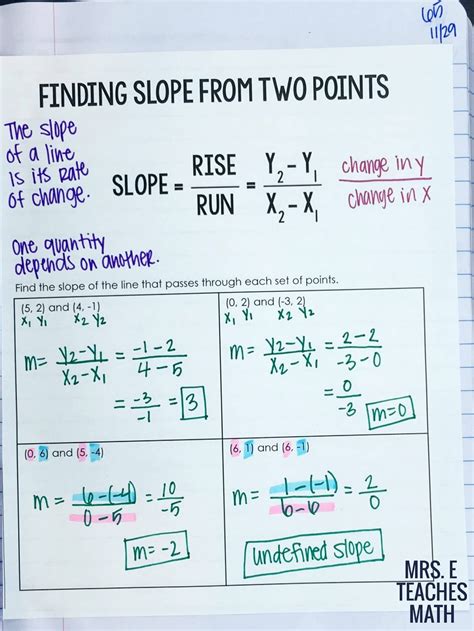 65
11/29
FINDING SLOPE FROM TWO POINTS
The slope
of a line
is its rate
of change.
SLOPE = RISE/RUN = (Y₂-Y₁)/(X₂-X₁) change in y/change in x
One quantity
depends on another.
Find the slope of the line that passes through each set of points.
(5, 2) and (4, -1)
X₁ Y₁ X₂ Y₂
m= (Y₂-Y₁)/(X₂-X₁) = (-1-2)/(4-5)
= -3/-1 = 3
(0, 2) and (-3, 2)
X₁ Y₁ X₂ Y₂
m= (Y₂-Y₁)/(X₂-X₁) = (2-2)/(-3-0)
= 0/-3 m=0
(0, 6) and (5, -4)
m = (6-(-4))/(0-5) = 10/-5
m= -2
(6, 1) and (6, -1)
m = (1-(-1))/(6-6) = 2/0
undefined slope
MRS. E
TEACHES
MATH